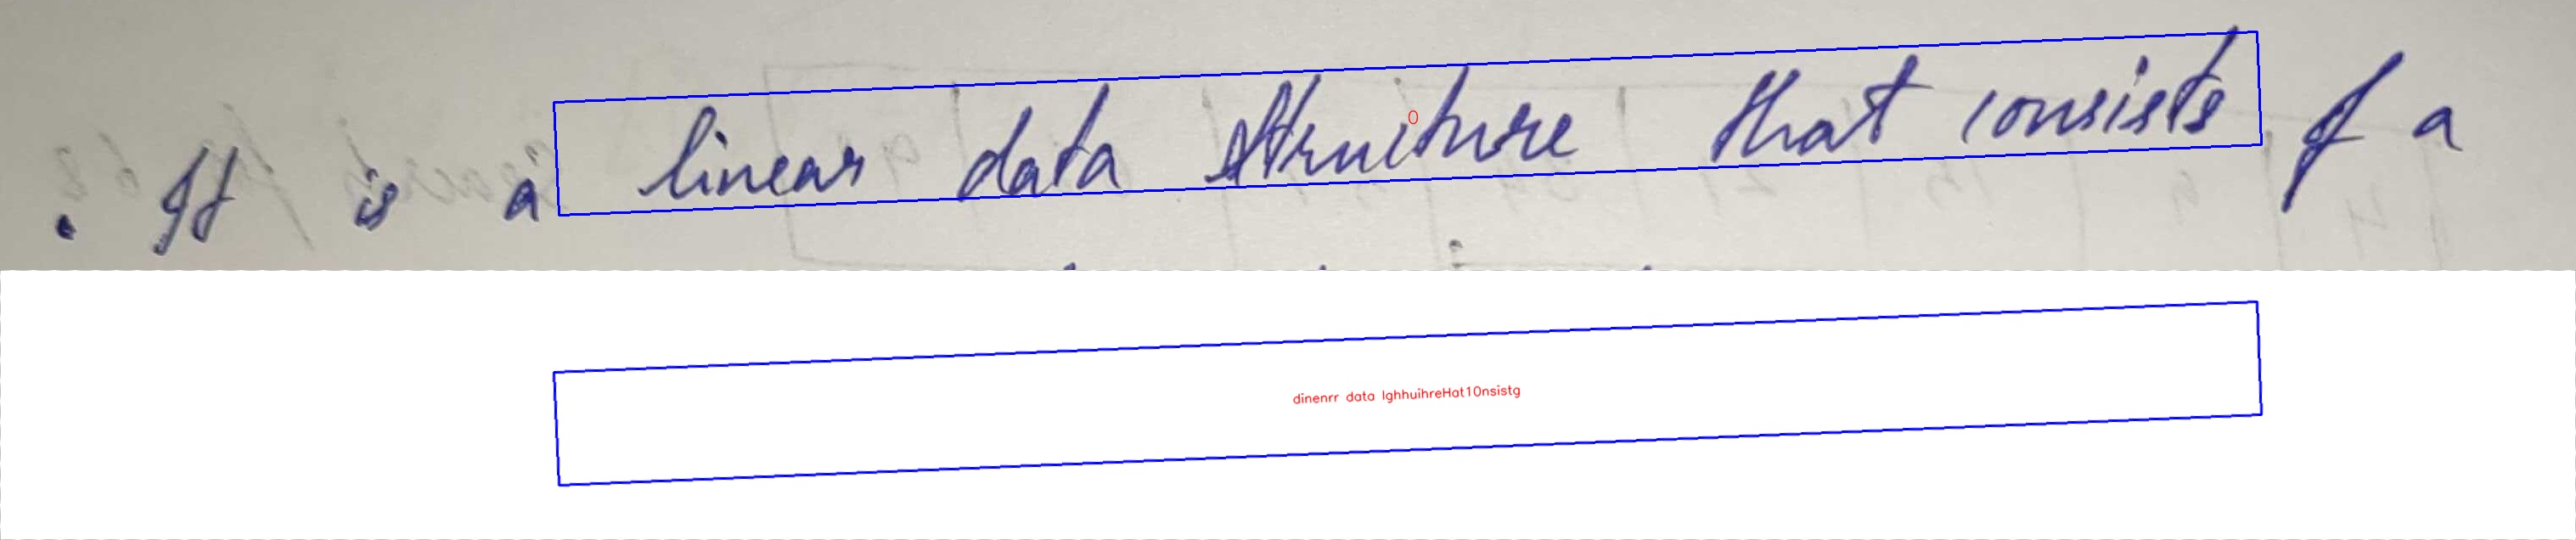 . It is a linear data structure that consists of a
0
dinenrr data IghhuihreHat10nsistg